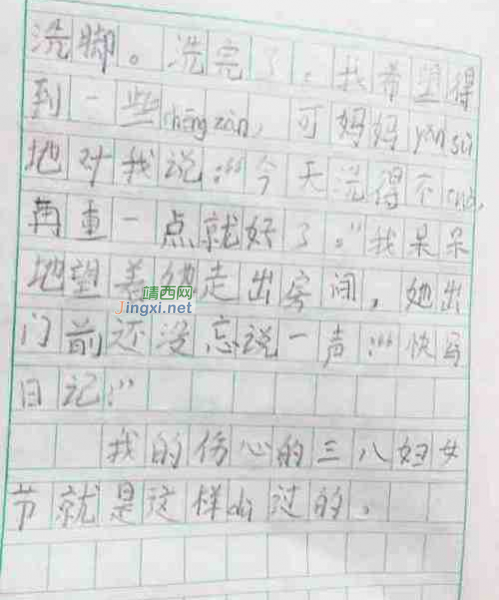 洗脚。洗完了，我希望得
到一些chēng zàn，可妈妈yán sù
地对我说：“今天洗得不cuò，
再重一点就好了。”我呆呆
地望着她走出房间，她出
靖西网
Jingxi.net
门前还没忘说一声：“快写
日记！”
我的伤心的三八妇女
节就是这样dù过的。